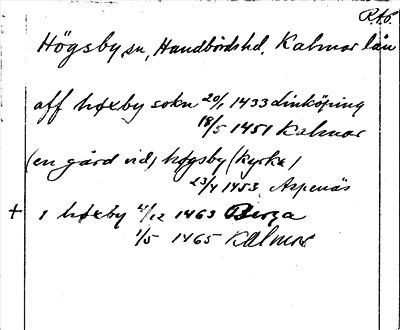 RAÖ.
Högsby sn, Handbördshd, Kalmar län
aff høxby sokn 20/1 1433 Linköping
18/5 1451 Kalmar
(en gård vid) høgsby (kyrka)
23/4 1453 Aspenäs
+ i høxby 4/12 1463 Berga
1/5 1465 Kalmar